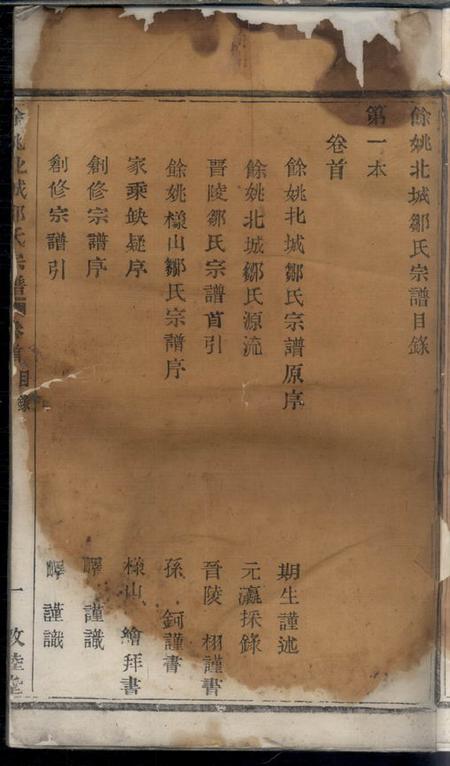 餘姚北城鄒氏宗譜目錄
第一本
卷首
餘姚北城鄒氏宗譜原序 期生謹述
餘姚北城鄒氏源流 元瀛採錄
晋陵鄒氏宗譜首引 晉陵 栩謹書
餘姚樣山鄒氏宗譜序 孫 錒謹書
家乘缺疑序 樣山 繪拜書
創修宗譜序 謹識
創修宗譜引 謹識
餘姚北城鄒氏宗譜 卷首 目錄 一 敦睦堂